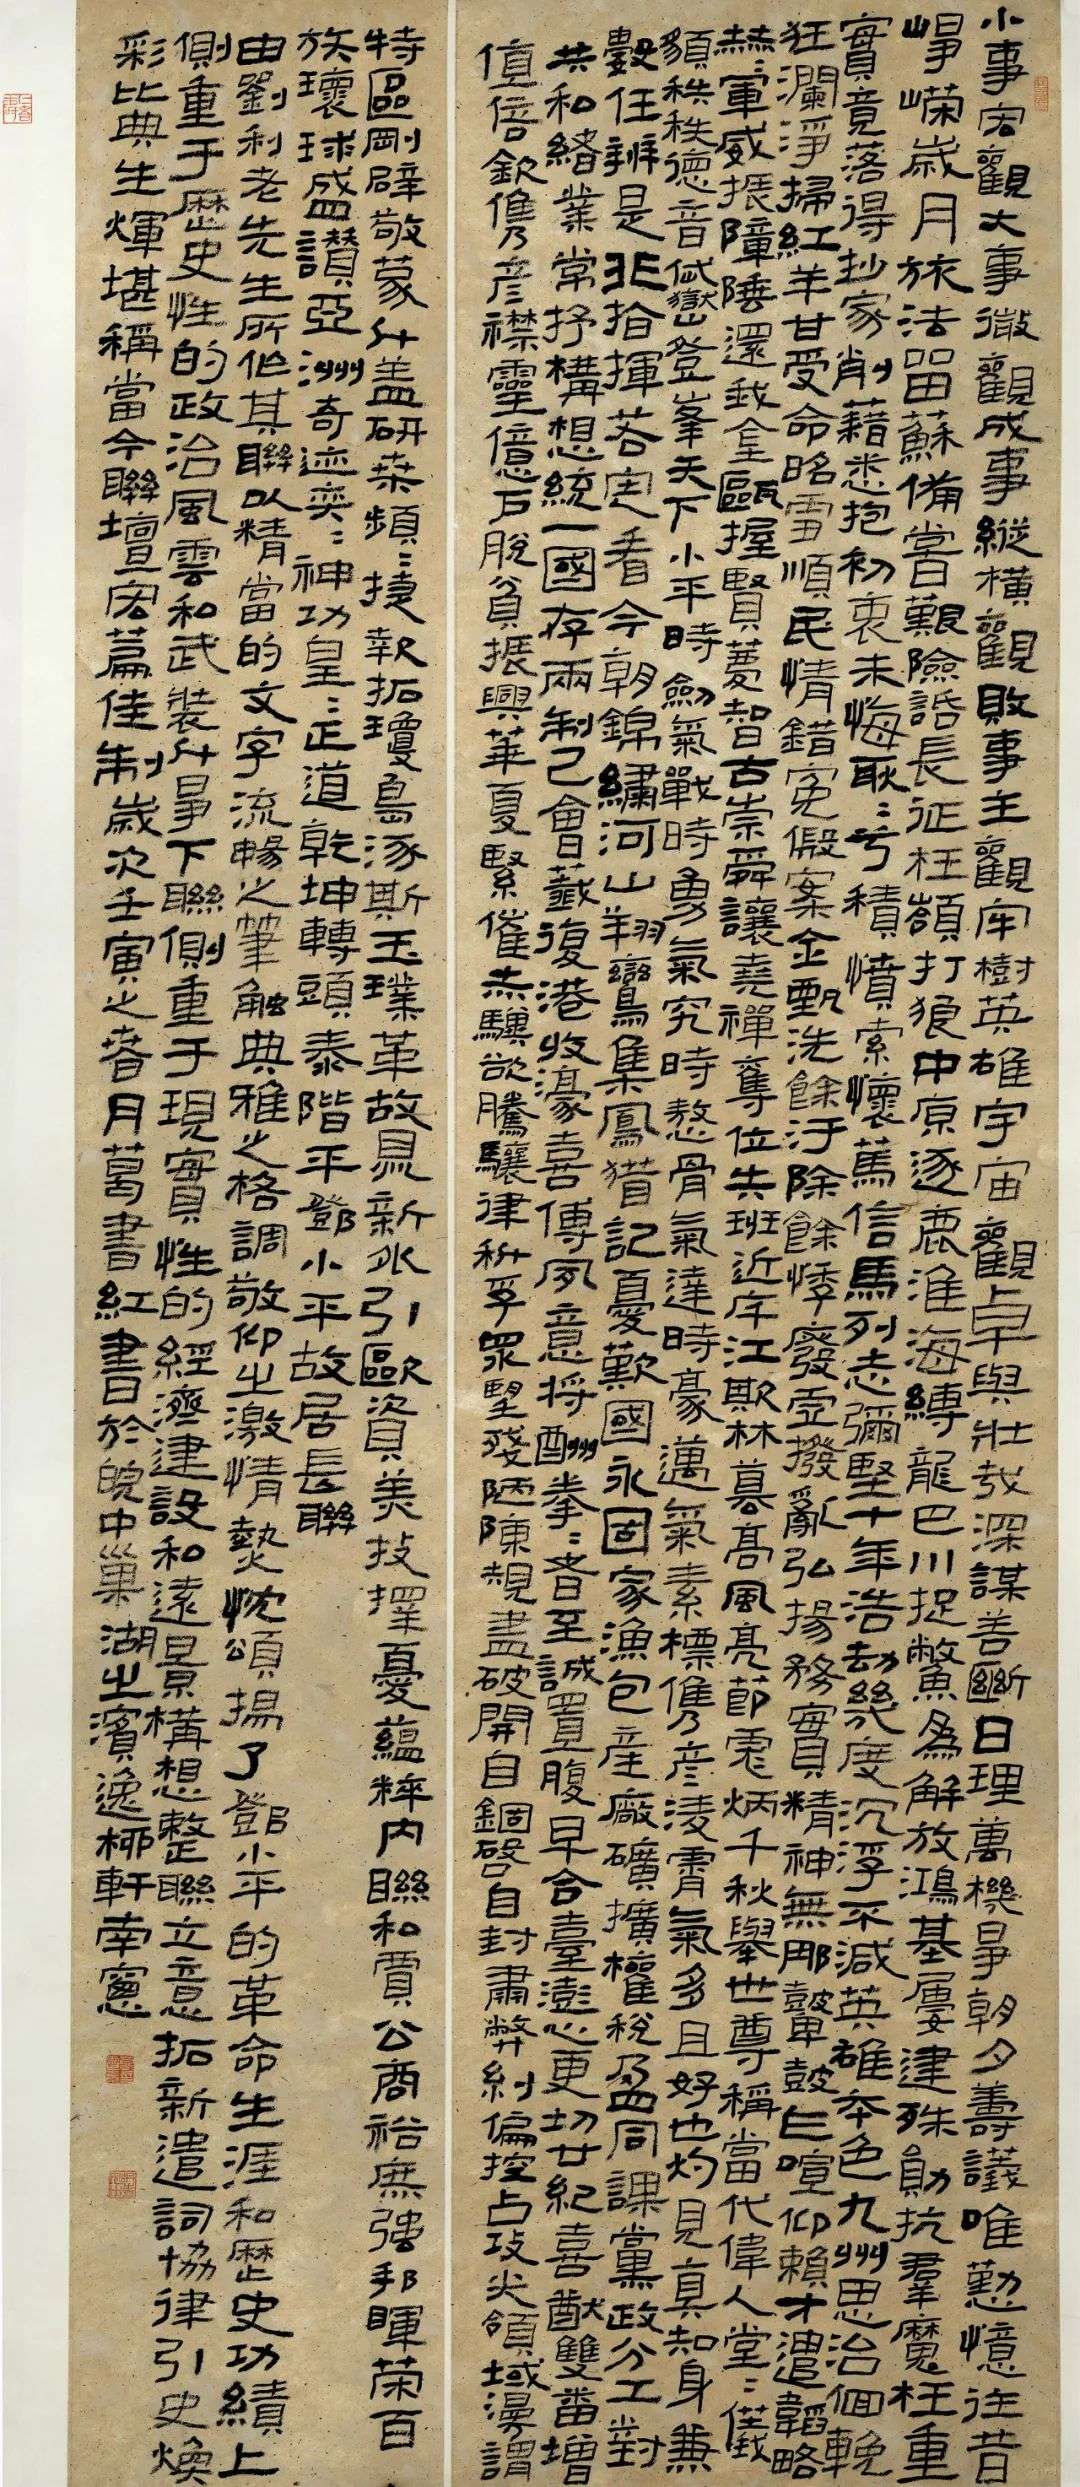 小事宏觀大事微觀成事縱橫觀敗事主觀牢樹英雄宇宙觀早與壯哉深謀善斷日理萬機爭朝夕壽議唯勤憶往昔
崢嶸歲月旅法留蘇備嘗艱險話長征枉嶺打狼中原逐鹿淮海縛龍巴川捉鱉爲解放鴻基屢建殊勛抗羣魔枉重
實竟落得抄家削藉悉抱初衷未悔耿〻兮積憤索懷篤信馬列志彌堅十年浩劫幾度沉浮不減英雄本色九州思治個輓
狂瀾淨掃紅羊甘受命昭雪順民情錯冤假案金甄洗餘汙除餘悸廢壺撥亂弘揚務實精神無那鼙鼓喧仰賴才遣韜略
赫〻軍威振障陲還我金甌握賢薆智古崇舜讓堯禪奪位去班近斥江欺林慕高風亮節彪炳千秋舉世尊稱當代偉人堂〻儀
額秩秩德音岱嶽登峯天下小平時劍氣戰時勇氣究時憨骨氣達時豪邁氣素標雋彥淩霄氣多且好也灼見真知身兼
數任辨是非指揮若定看今朝錦繡河山翔鸞集鳳猎記憂歎國永固家漁包產廠礦擴權稅盈同課黨政分工對
共和緒業常抒構想統一國存兩制已會籤復港收濠喜傳夙意將酬拳〻者至誠置腹早合臺澎心更切廿紀喜猷雙番增
值倍欽雋彥襟靈億戶脫貧振興華夏緊催赤驥欲騰驤律秅孚眾望殘陋陳規盡破開自錮啓自封肅弊糾偏控占攻尖領域漫謂
特區剛辟敬蒙升盖研桑頻〻捷報拓瓊島涿斯玉璞革故見新水引歐資美技擇憂蘊粹內聯和賈公商裕庶強邦暉荣百
族環球盛讚亞洲奇迹奕〻神功皇〻正道乾坤轉頭泰階平鄧小平故居長聯
由劉利老先生所作其聯以精當的文字流暢之筆觸典雅之格調敬仰之激情熱忱頌揚了鄧小平的革命生涯和歷史功績上
側重于歷史性的政治風雲和武裝升爭下聯側重于現實性的經濟建設和遠景構想整聯立意拓新遣詞協律引史煥
彩比典生輝堪稱當今聯壇宏篇佳制歲次壬寅之春月葛書紅書於皖中巢湖之濱逸柳軒南窗